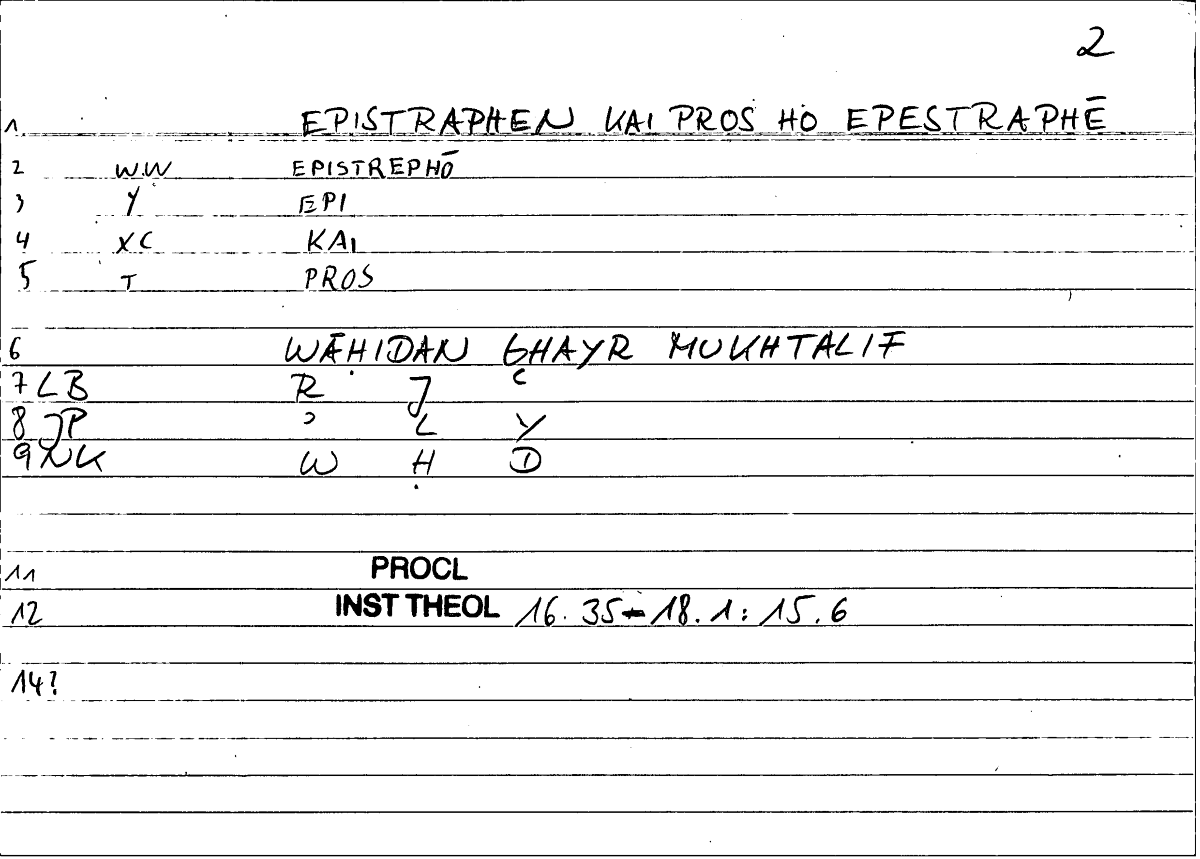 2
1 EPISTRAPHEN KAI PROS HO EPESTRAPHĒ
2 W.W EPISTREPHŌ
3 Y EPI
4 XC KAI
5 T PROS
6 WĀḤIDAN GHAYR MUKHTALIF
7 LB R J ʿ
8 JP ʾ L Y
9 NK W Ḥ D
11 PROCL
12 INST THEOL 16. 35-18. 1: 15. 6
14?